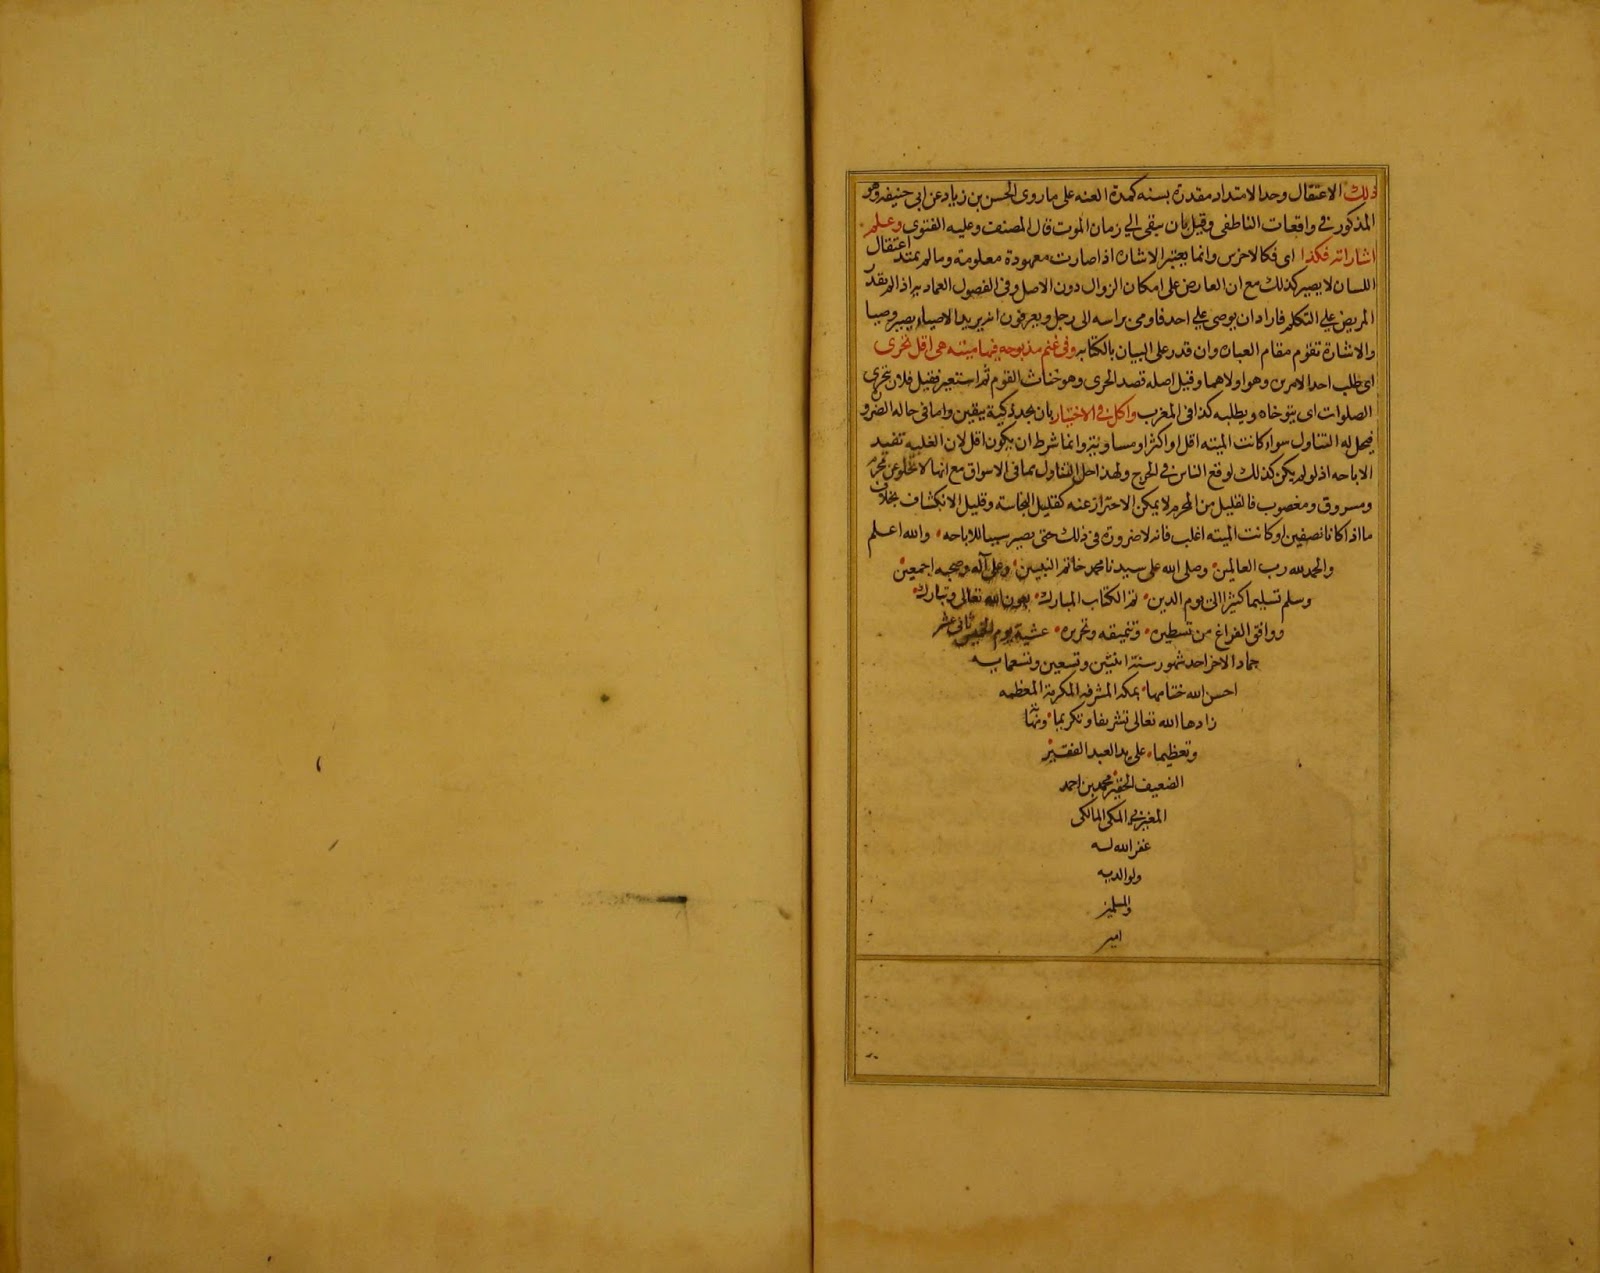 ذلك الاعتقال وحد الامتداد مقدرة بسنه كمدة العنه على ما روى الحسن بن زياد عن ابى حنيفه وهو
المذكور في واقعات الناطفى وقيل بان يبقى الى زمان الموت قال المصنف وعليه الفتوى وعلم
اشاراته فكذا اى فكالاخرس وانما يعتبر الاشاره اذا صارت معهودة معلومة وما لم يمتد اعتقال
اللسان لا يصير كذلك مع ان العارض على امكان الزوال دون الاصل وفى الفصول العماديه اذا لم يقدر
المريض على التكلم فاراد ان يوصى على احد فاومى براسه الى رجل ويعرفون انه يريد الايصاء يصير وصيا
والاشارة تقوم مقام العباره وان قدر على البيان بالكتابه وفى غنم مذبوحه فيها ميته هى اقل تحرى
اى طلب احد الامرين وهو اولاهما وقيل اصله قصد الحرى وهو جناب القوم ثم استعير فقيل فلان يتحرى
الصلوات اى يتوخاه ويطلبه كذا فى المغرب واكل فى الاختيار بان يجد ذكية بيقين واما فى حاله الضرو
فيحل له التناول سواء كانت الميته اقل او اكثر او مساويه وانما شرط ان يكون اقل لان الغلبه تفيد
الاباحه اذ لو لم يكن كذلك لوقع الناس فى الحرج ولهذا احل التناول بما فى الاسواق مع انها لا تخلو عن محرم
ومسروق ومغصوب فالقليل من المحرم لا يمكن الاحتراز عنه كقليل النجاسة وقليل الانكشاف بخلاف
ما اذا كانا نصفين او كانت الميته اغلب فانه لا ضرورة فى ذلك حتى يصير سببا للاباحه والله اعلم
والحمد لله رب العالمين وصلى الله على سيدنا محمد خاتم النبيين وعلى آله وصحبه اجمعين
وسلم تسليما كثيرا الى يوم الدين تم الكتاب المبارك بعون الله تعالى وتبارك
ووافق الفراغ من تسطيره وتنميقه وتحريره عشية يوم الخميس ثانى عشر
جماد الاخر احد شهور سنة اثنتين وتسعين وتسعمايه
احسن الله ختامها بمكه المشرفه المكرمة المعظمه
زادها الله تعالى تشريفا وتكريما
وتعظيما على يد العبد الفقير
الضعيف الحقير محمد بن احمد
المغربى المكى المالكى
غفر الله له
ولوالديه
والمسلمين
امين